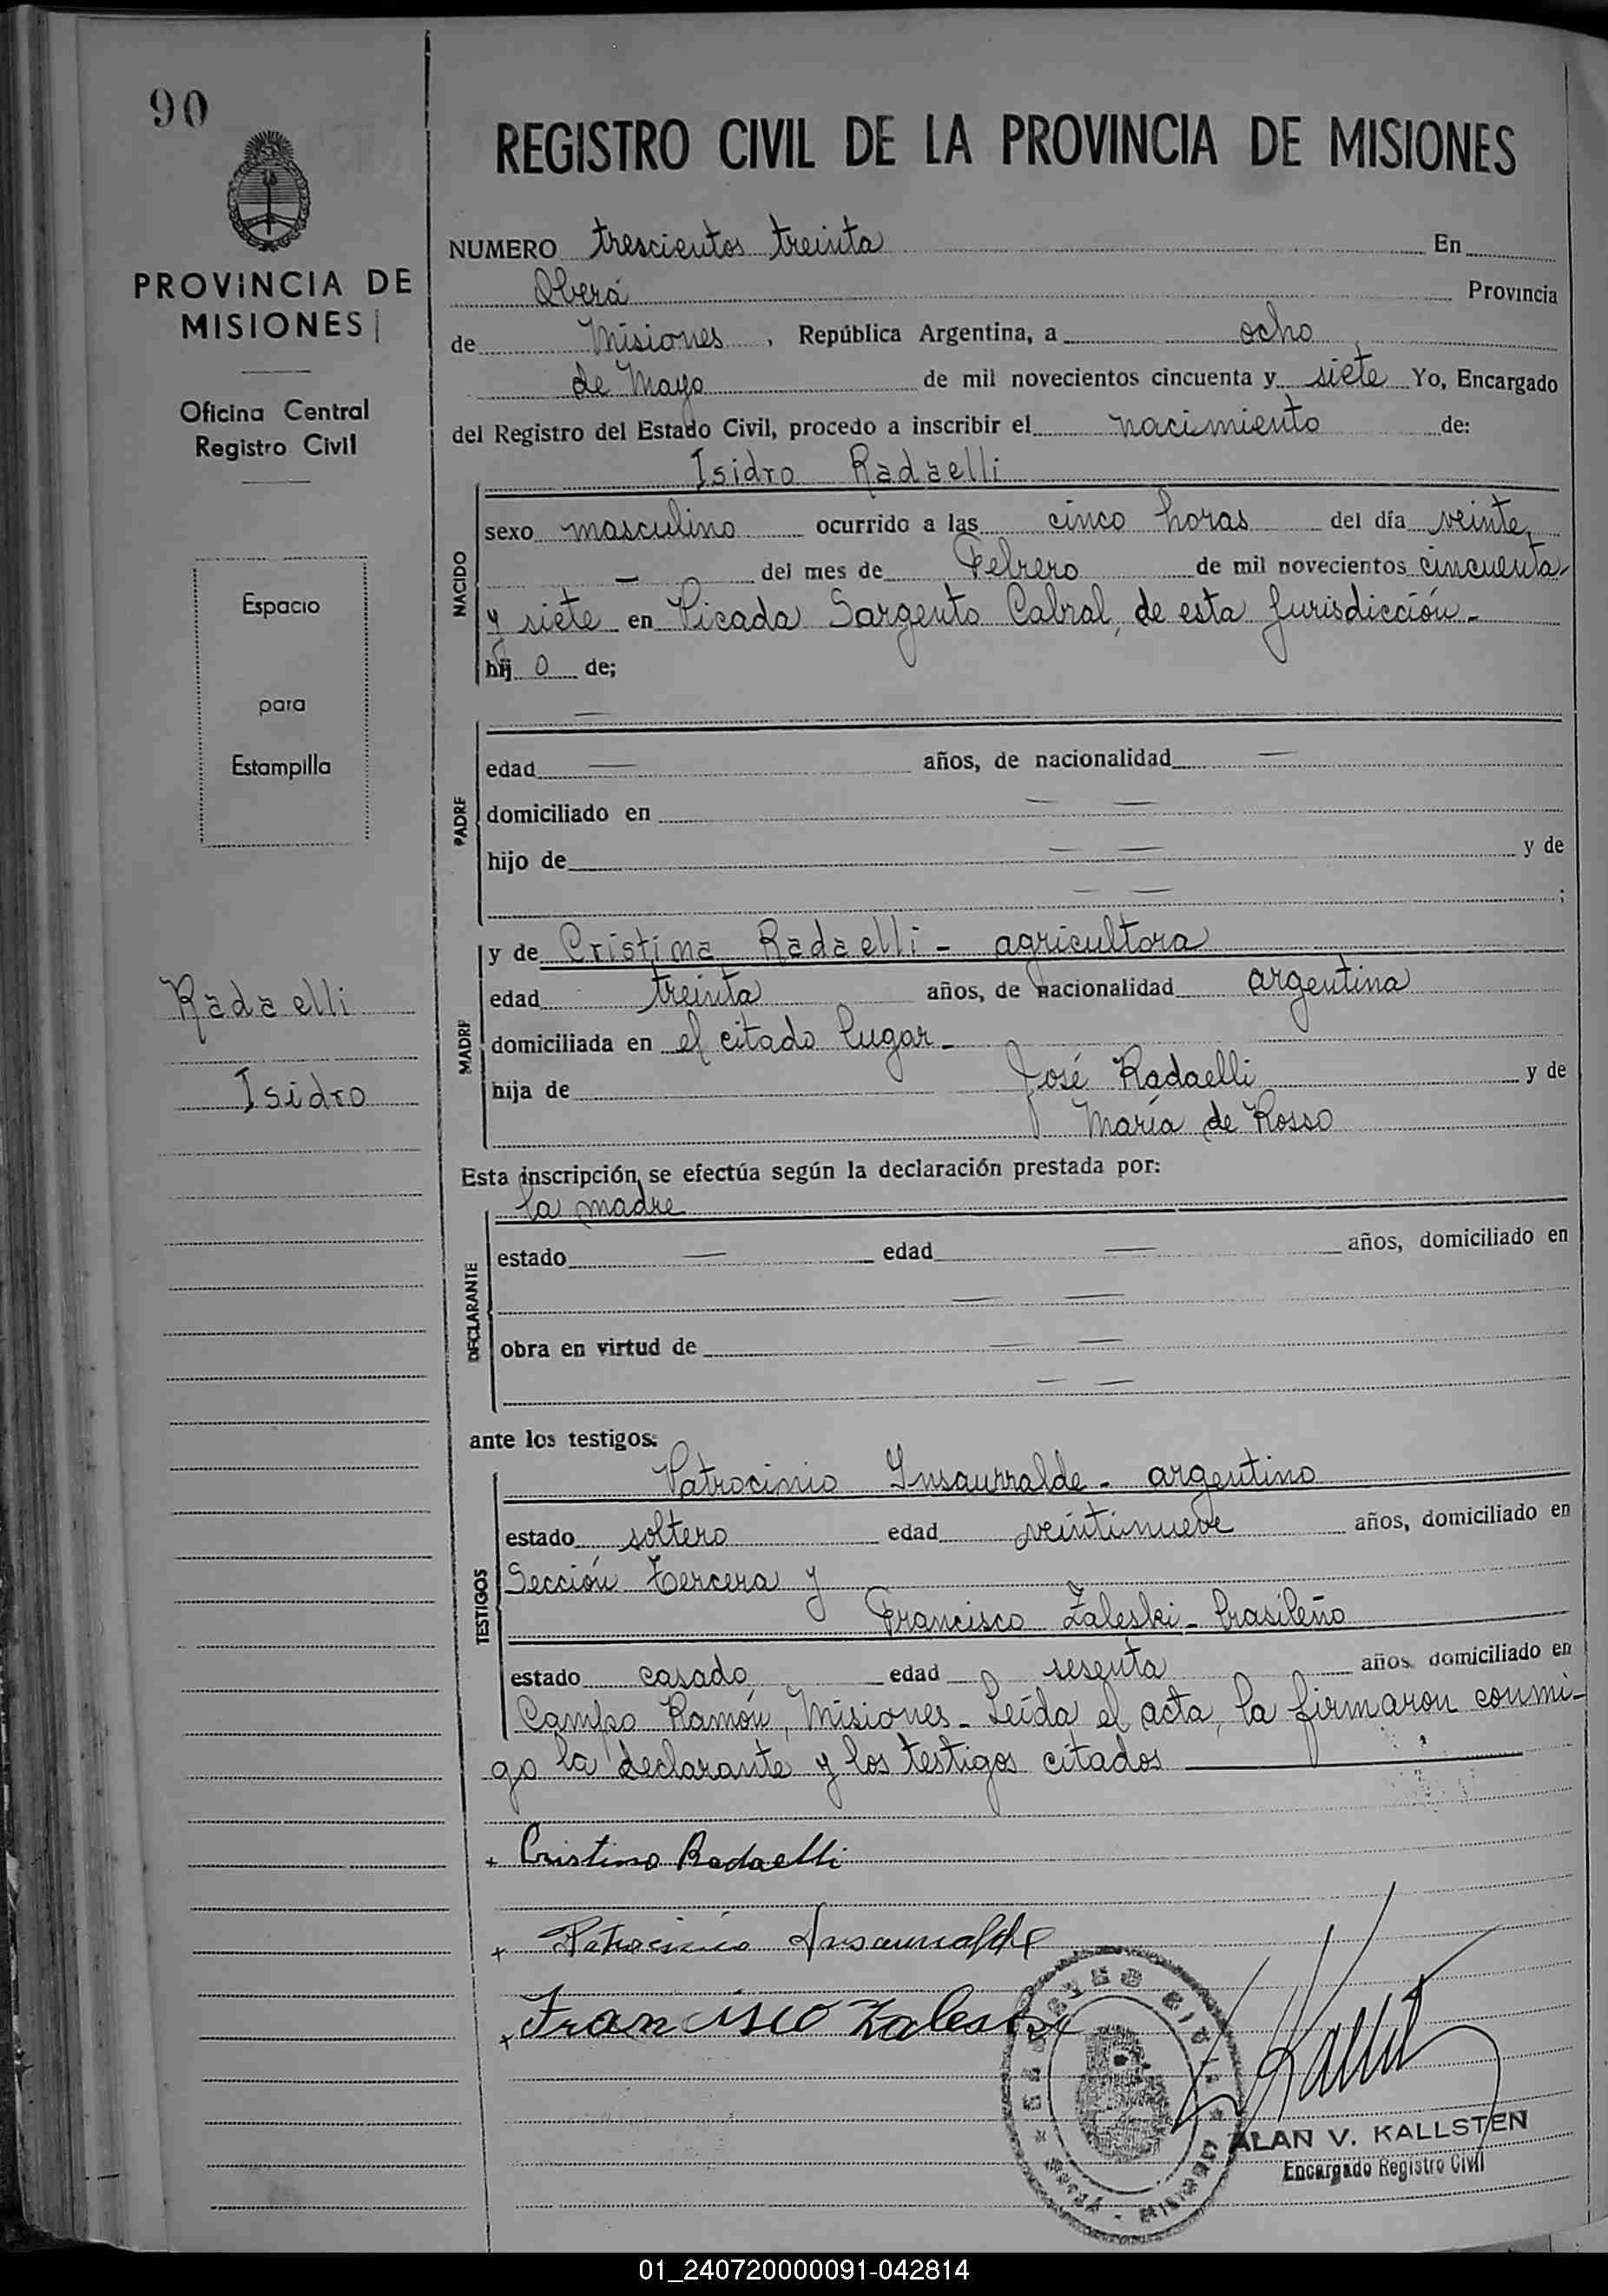 90
PROVINCIA DE
MISIONES
Oficina Central
Registro Civil
Espacio
para
Estampilla
Radaelli
Isidro
REGISTRO CIVIL DE LA PROVINCIA DE MISIONES
NUMERO trescientos treinta En
Oberá Provincia
de Misiones, República Argentina, a ocho
de Mayo de mil novecientos cincuenta y siete Yo, Encargado
del Registro del Estado Civil, procedo a inscribir el nacimiento de:
Isidro Radaelli
NACIDO
sexo masculino ocurrido a las cinco horas del día veinte
— del mes de Febrero de mil novecientos cincuenta
y siete en Picada Sargento Cabral, de esta Jurisdicción.-
hij o de;
—
PADRE
edad — años, de nacionalidad —
domiciliado en — —
hijo de — — y de
— — ;
y de Cristina Radaelli - agricultora
MADRE
edad treinta años, de nacionalidad argentina
domiciliada en el citado lugar.-
hija de José Radaelli y de
María de Rosso
Esta inscripción, se efectúa según la declaración prestada por:
la madre
DECLARANTE
estado — edad — años, domiciliado en
— —
obra en virtud de — —
— —
ante los testigos:
Patrocinio Insaurralde - argentino
TESTIGOS
estado soltero edad veintinueve años, domiciliado en
Sección Tercera y
Francisco Zaleski - brasileño
estado casado edad sesenta años domiciliado en
Campo Ramón, Misiones - Leída el acta, la firmaron conmi-
go la declarante y los testigos citados —
+ Cristina Radaelli
+ Patrocinio Insaurralde
+ Francisco Zaleski
ALAN V. KALLSTEN
Encargado Registro Civil
01_240720000091-042814